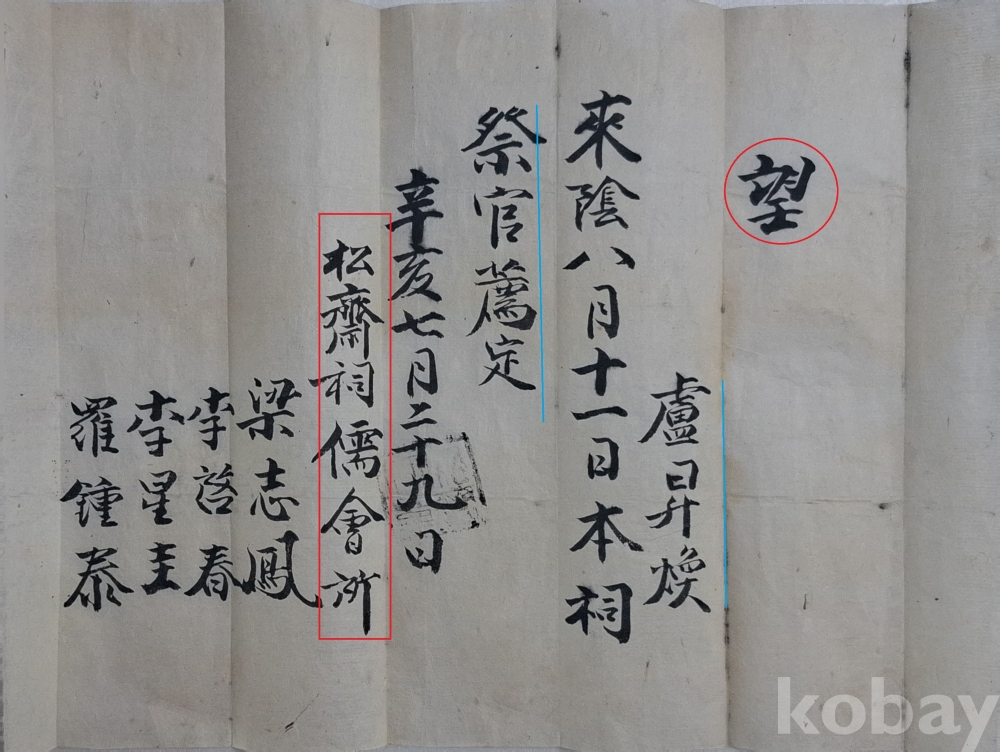 望
盧昇煥
來陰八月十一日本祠
祭官薦定
辛亥七月二十九日
松齋祠儒會所
梁志鳳
李啓春
李星圭
羅鍾泰
kobay